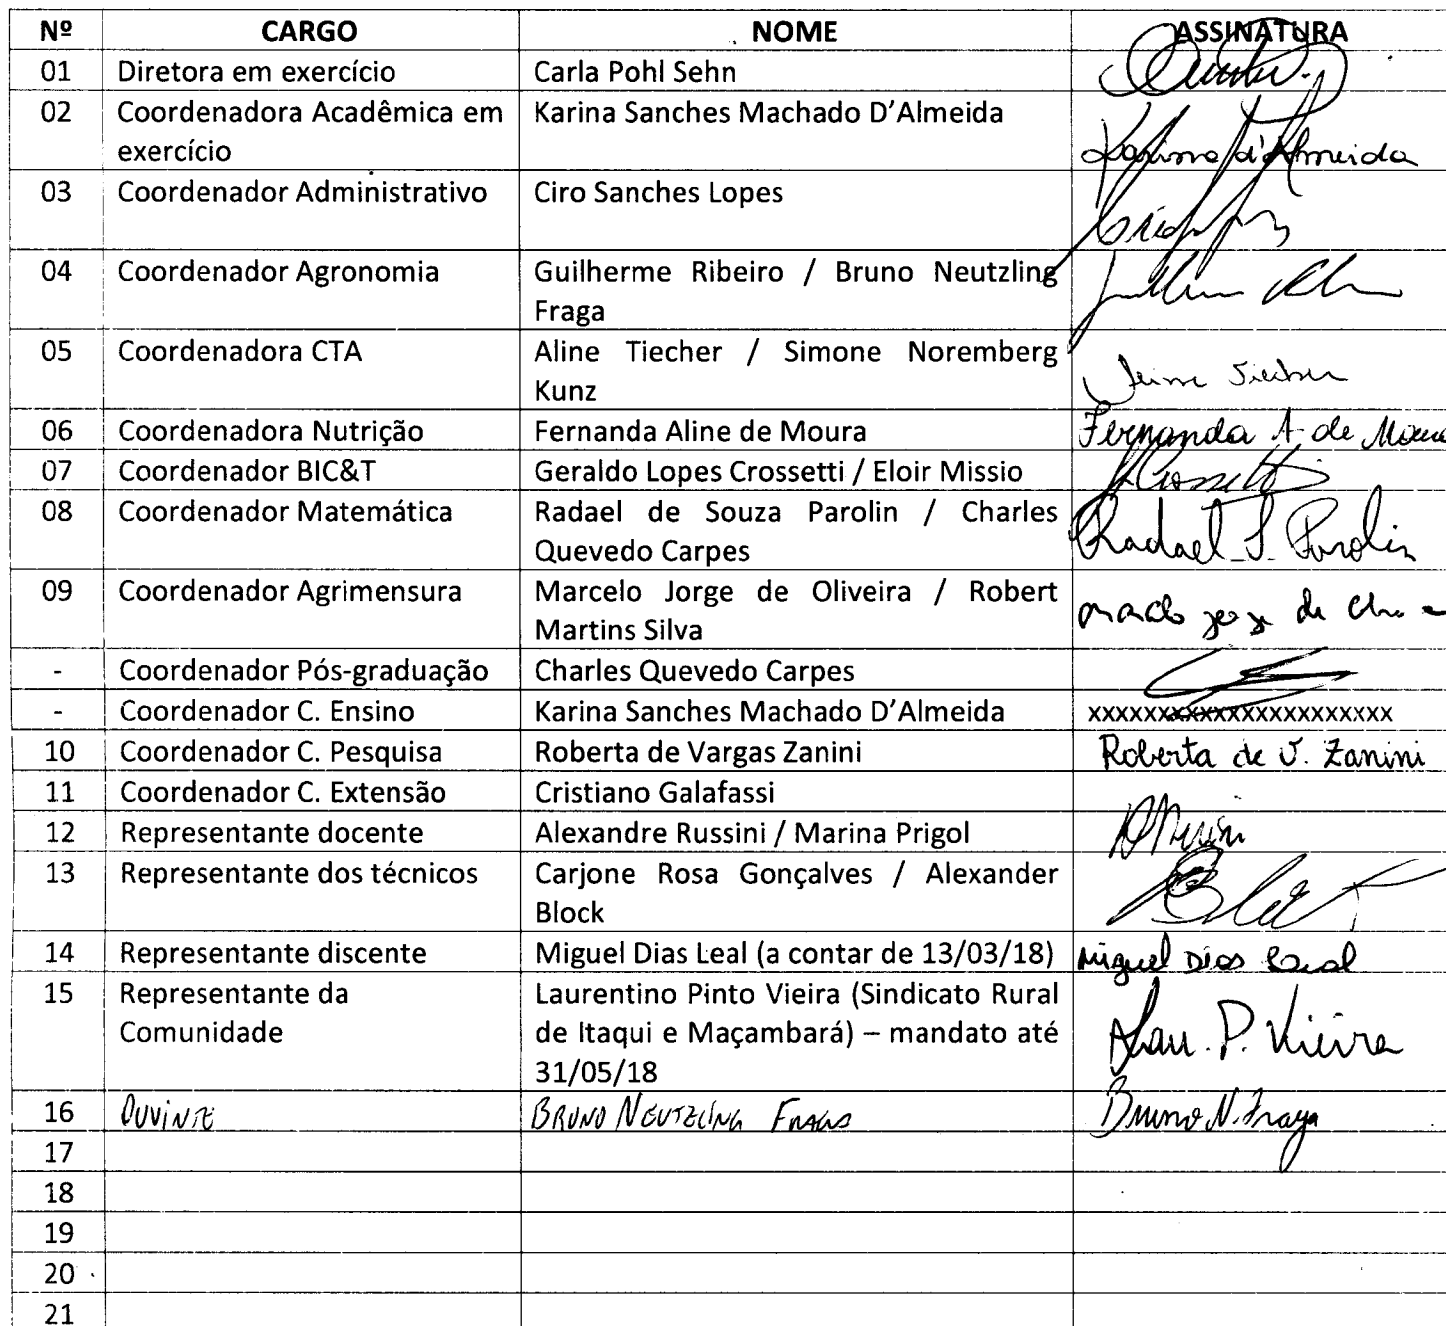 Nº CARGO NOME ASSINATURA
01 Diretora em exercício Carla Pohl Sehn
02 Coordenadora Acadêmica em Karina Sanches Machado D’Almeida
exercício Karina d'Almeida
03 Coordenador Administrativo Ciro Sanches Lopes
04 Coordenador Agronomia Guilherme Ribeiro / Bruno Neutzling
Fraga
05 Coordenadora CTA Aline Tiecher / Simone Noremberg
Kunz
06 Coordenadora Nutrição Fernanda Aline de Moura Fernanda A de Moura
07 Coordenador BIC&T Geraldo Lopes Crossetti / Eloir Missio Crossetti
08 Coordenador Matemática Radael de Souza Parolin / Charles
Quevedo Carpes Radael S. Parolin
09 Coordenador Agrimensura Marcelo Jorge de Oliveira / Robert
Martins Silva
- Coordenador Pós-graduação Charles Quevedo Carpes
- Coordenador C. Ensino Karina Sanches Machado D’Almeida xxxxxxxxxxxxxxxxxxxxxxx
10 Coordenador C. Pesquisa Roberta de Vargas Zanini Roberta de V. Zanini
11 Coordenador C. Extensão Cristiano Galafassi
12 Representante docente Alexandre Russini / Marina Prigol
13 Representante dos técnicos Carjone Rosa Gonçalves / Alexander
Block
14 Representante discente Miguel Dias Leal (a contar de 13/03/18) Miguel Dias Leal
15 Representante da Laurentino Pinto Vieira (Sindicato Rural
Comunidade de Itaqui e Maçambará) – mandato até Lau. P. Vieira
31/05/18
16 OUVINTE BRUNO NEUTZLING FRAGA Bruno N. Fraga
17
18
19
20
21